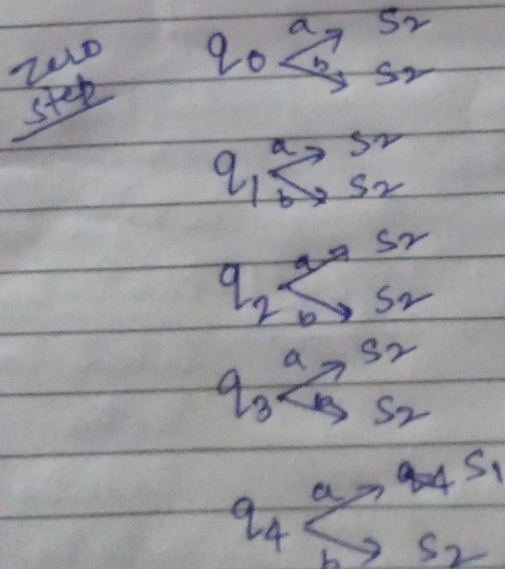 Zero step
q0 a → S2
b → S2
q1 a → S2
b → S2
q2 a → S2
b → S2
q3 a → S2
b → S2
q4 a → S1
b → S2